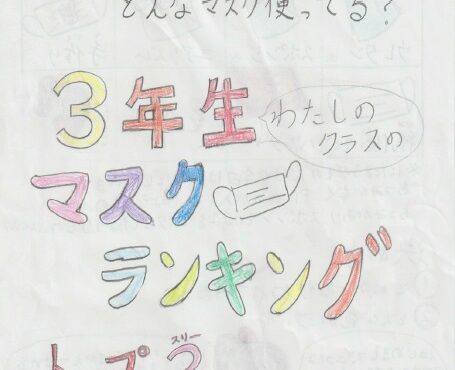 どんなマスク使ってる？
3年生
わたしの
クラスの
マスク
ランキング
スリー
トップ3